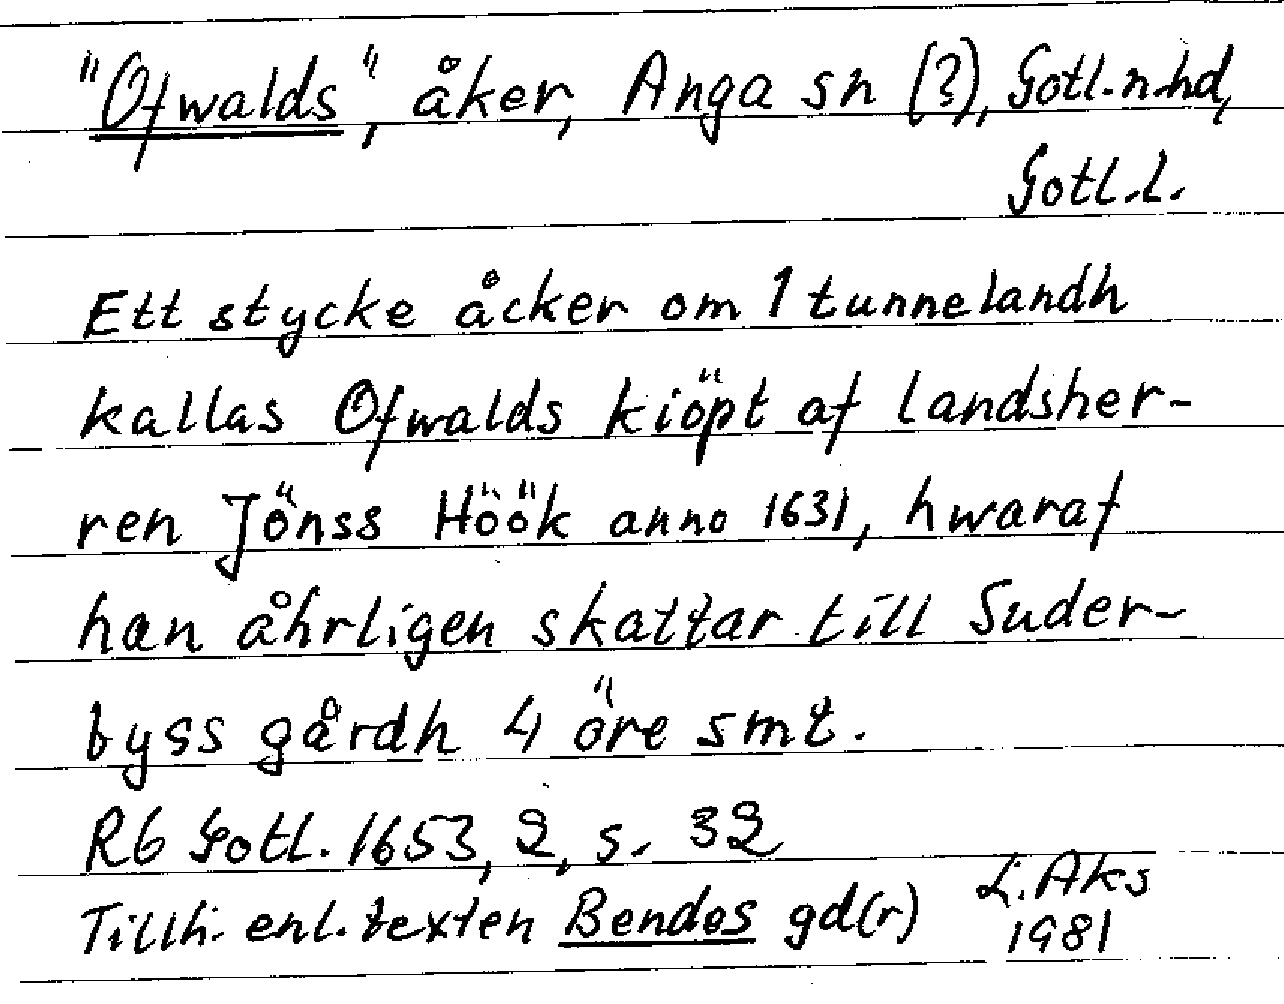 "Ofwalds", åker, Anga sn (?), Gotl.n.hd,
Gotl.l.
Ett stycke åcker om 1 tunnelandh
kallas Ofwalds kiöpt af landsher-
ren Jönss Höök anno 1631, hwaraf
han åhrligen skattar till Suder-
byss gårdh 4 öre smt.
Rb Gotl. 1653, 2, s. 32
Tillh. enl. texten Bendes gd(r)
L. Aks
1981